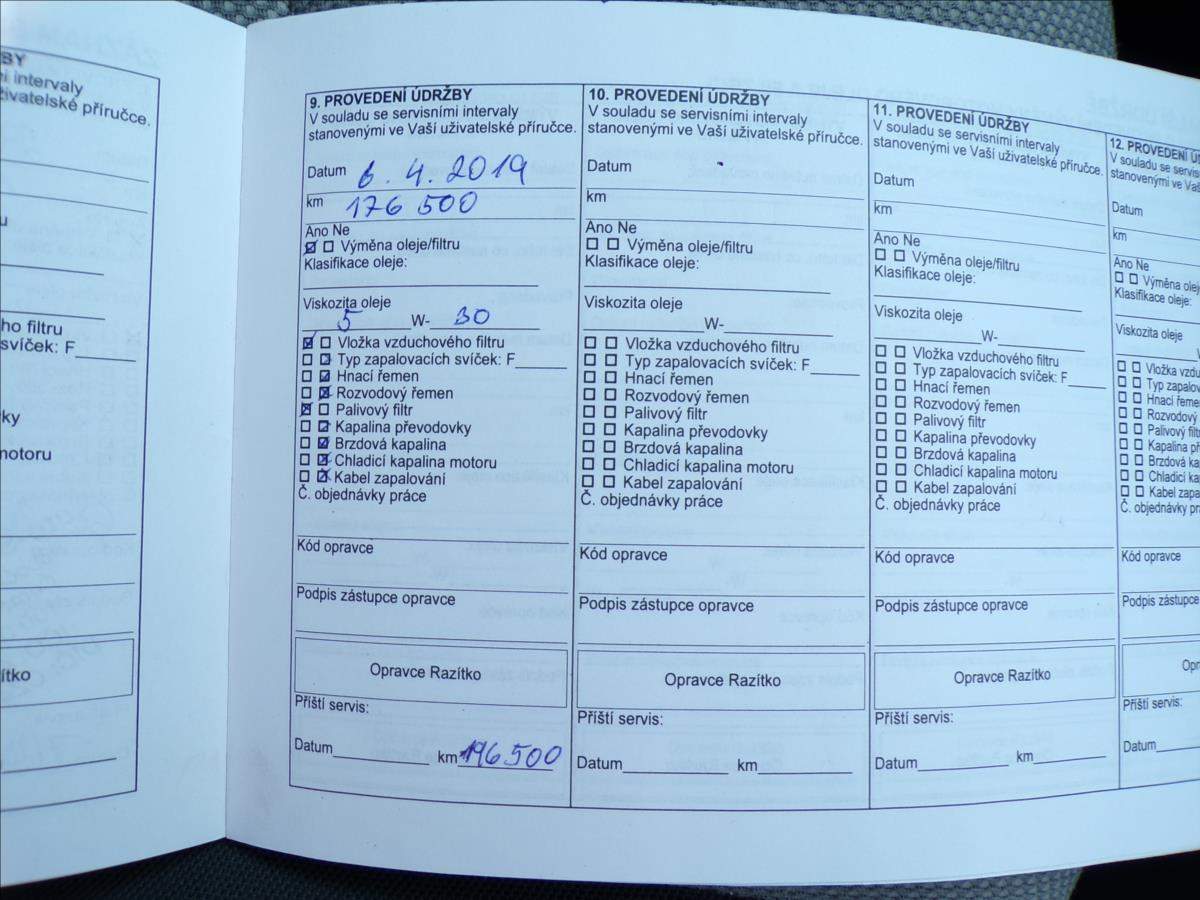 BY
í intervaly
živatelské příručce.
u
ho filtru
svíček: F
ky
motoru
ítko
9. PROVEDENÍ ÚDRŽBY
V souladu se servisními intervaly
stanovenými ve Vaší uživatelské příručce.
Datum 6. 4. 2019
km 176 500
Ano Ne
Výměna oleje/filtru
Klasifikace oleje:
Viskozita oleje
5 W- 30
Vložka vzduchového filtru
Typ zapalovacích svíček: F
Hnací řemen
Rozvodový řemen
Palivový filtr
Kapalina převodovky
Brzdová kapalina
Chladicí kapalina motoru
Kabel zapalování
Č. objednávky práce
Kód opravce
Podpis zástupce opravce
Opravce Razítko
Příští servis:
Datum km 196500
10. PROVEDENÍ ÚDRŽBY
V souladu se servisními intervaly
stanovenými ve Vaší uživatelské příručce.
Datum
km
Ano Ne
Výměna oleje/filtru
Klasifikace oleje:
Viskozita oleje
W-
Vložka vzduchového filtru
Typ zapalovacích svíček: F
Hnací řemen
Rozvodový řemen
Palivový filtr
Kapalina převodovky
Brzdová kapalina
Chladicí kapalina motoru
Kabel zapalování
Č. objednávky práce
Kód opravce
Podpis zástupce opravce
Opravce Razítko
Příští servis:
Datum km
11. PROVEDENÍ ÚDRŽBY
V souladu se servisními intervaly
stanovenými ve Vaší uživatelské příručce.
Datum
km
Ano Ne
Výměna oleje/filtru
Klasifikace oleje:
Viskozita oleje
W-
Vložka vzduchového filtru
Typ zapalovacích svíček: F
Hnací řemen
Rozvodový řemen
Palivový filtr
Kapalina převodovky
Brzdová kapalina
Chladicí kapalina motoru
Kabel zapalování
Č. objednávky práce
Kód opravce
Podpis zástupce opravce
Opravce Razítko
Příští servis:
Datum km
12. PROVEDENÍ Ú
V souladu se servis
stanovenými ve Vaš
Datum
km
Ano Ne
Výměna olej
Klasifikace oleje:
Viskozita oleje
Vložka vzdu
Typ zapalo
Hnací řeme
Rozvodový
Palivový filt
Kapalina př
Brzdová ka
Chladicí ka
Kabel zapa
Č. objednávky prá
Kód opravce
Podpis zástupce
Op
Příští servis:
Datum